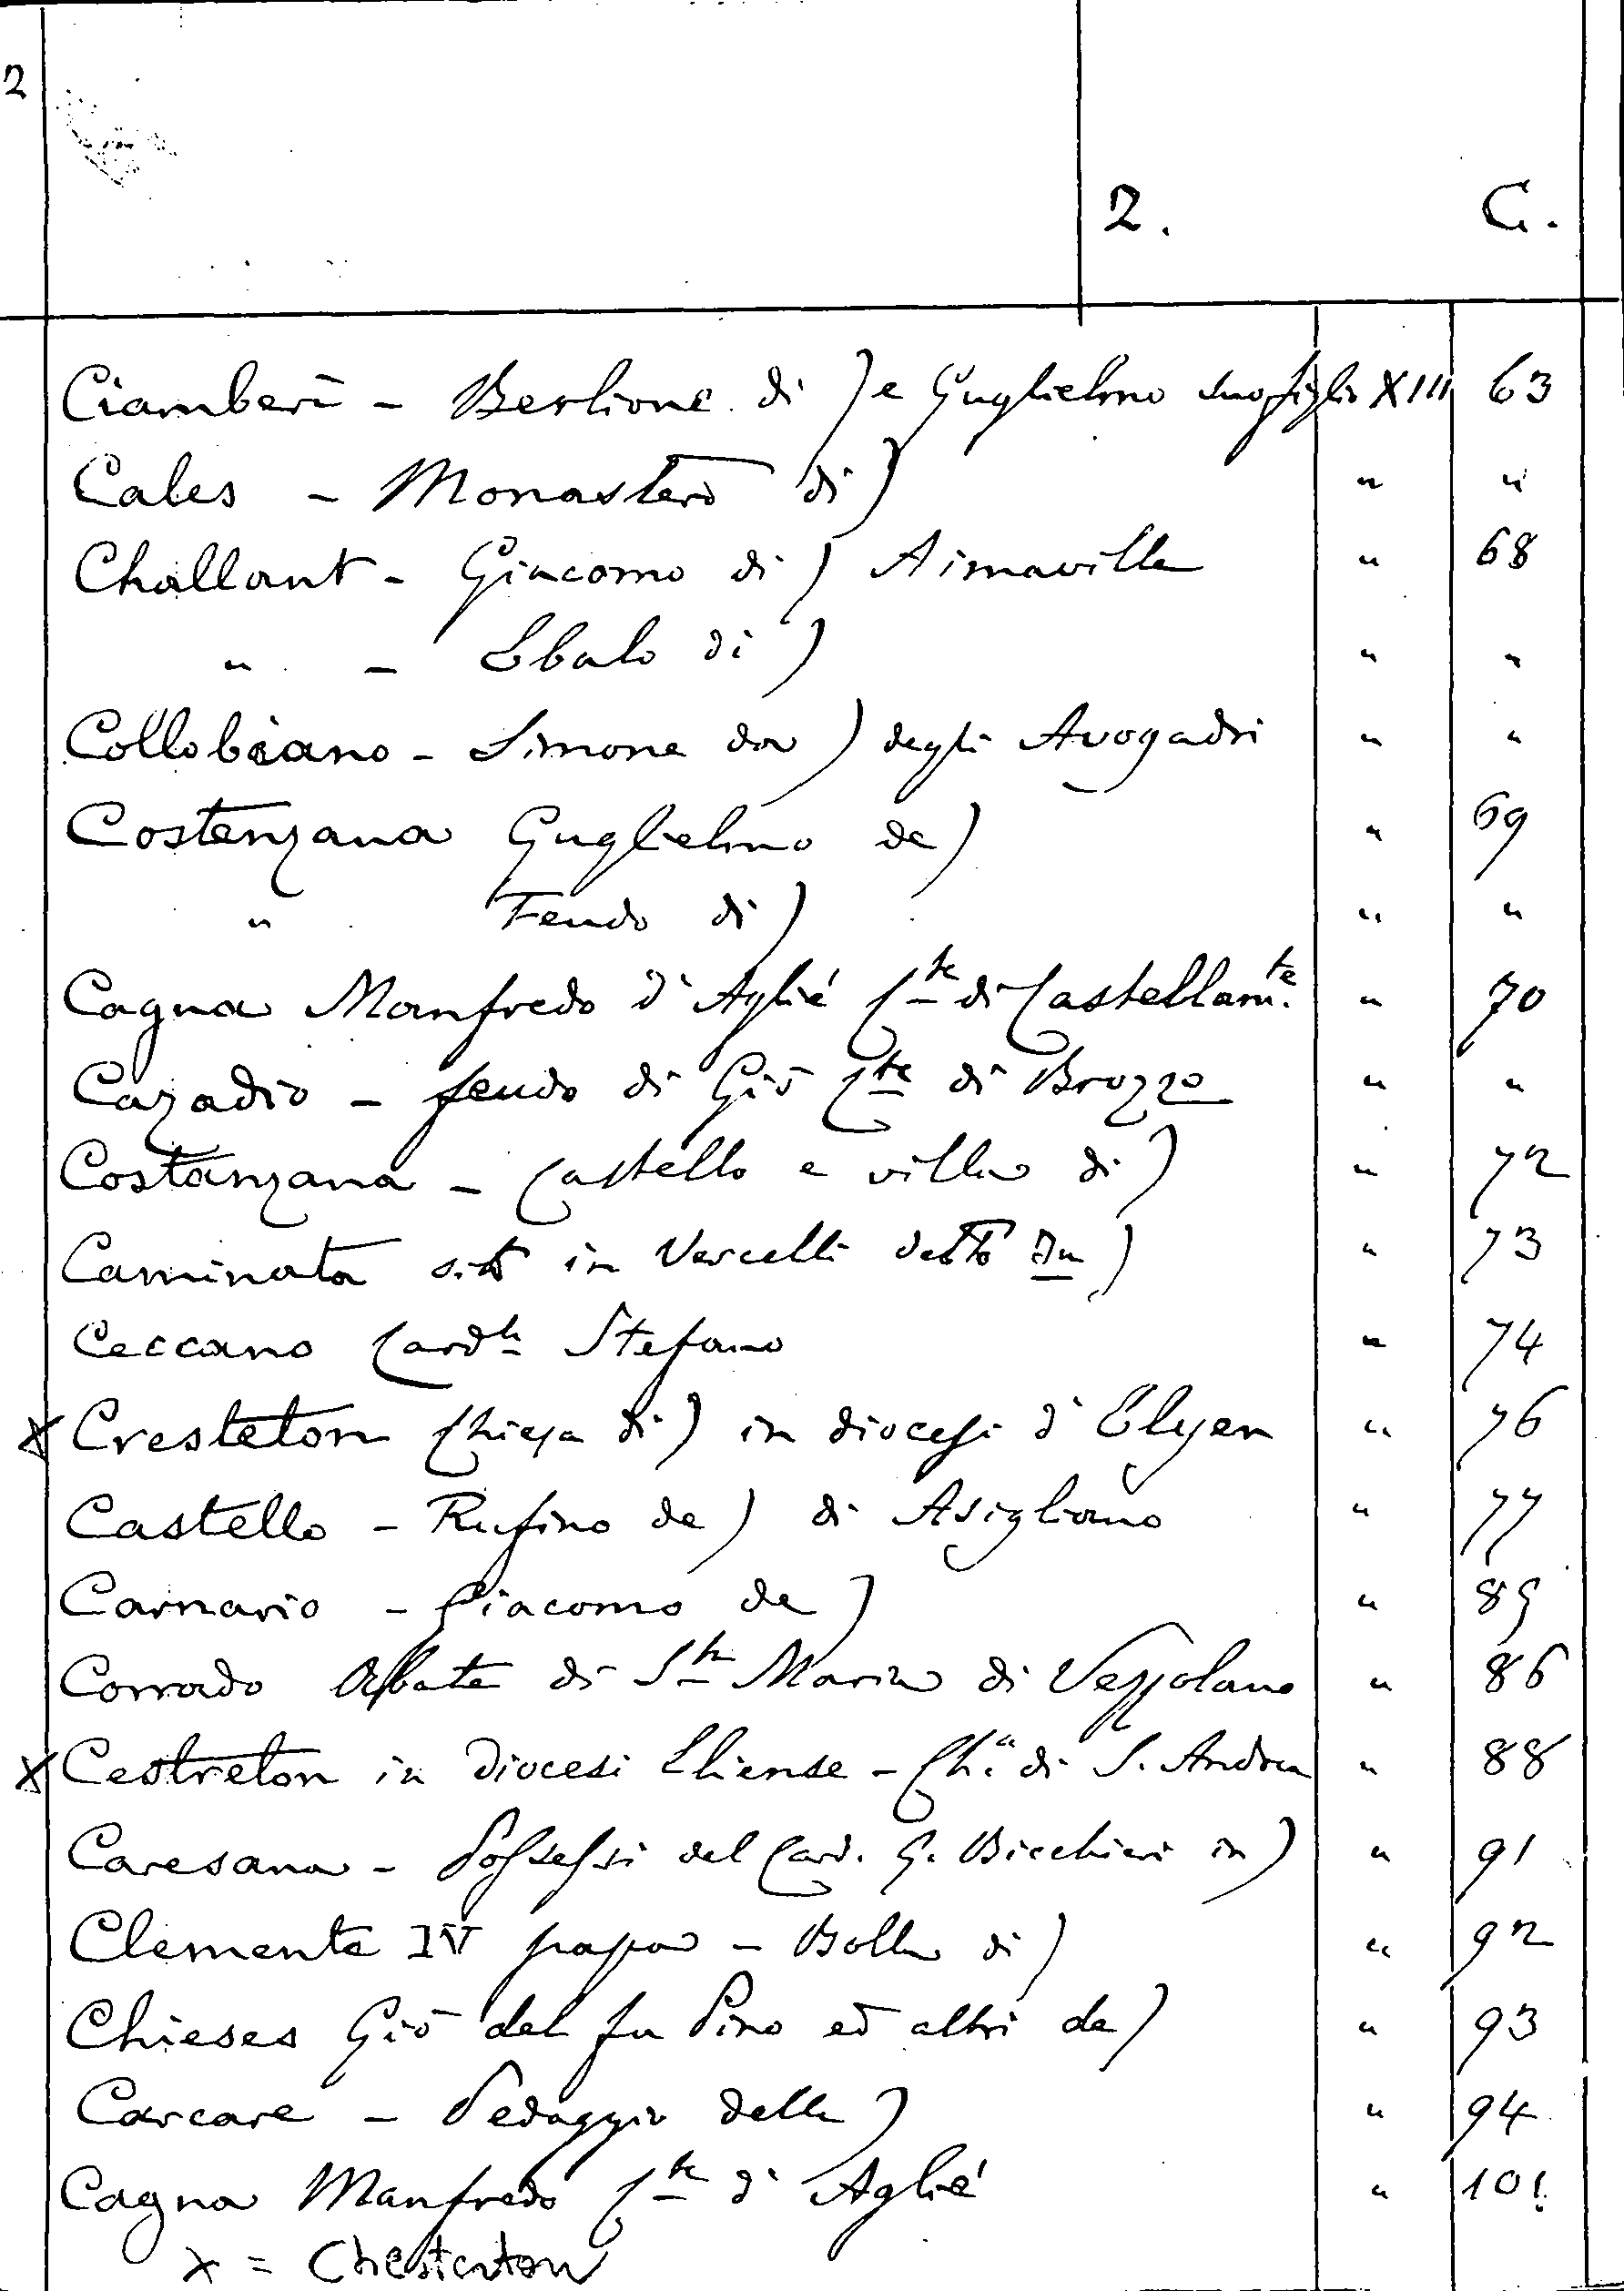 2
2. C.
Ciamberì - Berlione di ) e Guglielmo suo figlio XIII 63
Cales - Monastero di ) " "
Challant - Giacomo di ) Aimaville " 68
" - Ebalo di ) " "
Collobiano - Simone da ) degli Avogadri " "
Costanzana Guglielmo de ) " 69
" Feudo di ) " "
Cagna Manfredo d' Agliè Cte di Castellamte. " 70
Cazadio - feudo di Giõ Cte di Brozzo " "
Costanzana - Castello e villa di ) " 72
Caminata sita in Vercelli detto ) " 73
Ceccano Cardle Stefano " 74
x Cresteton Chiesa di ) in diocesi d' Elyen " 76
Castello - Rufino de ) di Asigliano " 77
Carnario - Giacomo de ) " 85
Corrado Abate di Sta Maria di Vezzolano " 86
x Cestreton in diocesi Eliense - Cha. di S. Andrea " 88
Caresana - Possessi del Card. G. Bicchieri in ) " 91
Clemente IV papa - Bolla di ) " 92
Chieses Giõ del fu Pino ed altri de ) " 93
Carcare - Pedaggio delle ) " 94
Cagna Manfredo Cte d' Agliè " 101
x = Chesterton